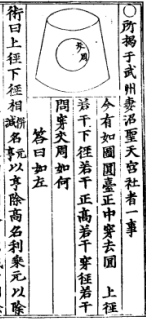 ○所揭于武州妻沼聖天宮社者一事
交周
今有如圖圓臺正中穿去圓 上徑
若干下徑若干正高若干穿徑若干
問穿交周如何
答曰如左
術曰上徑下徑相減名亨以亨除高名利乘元以除